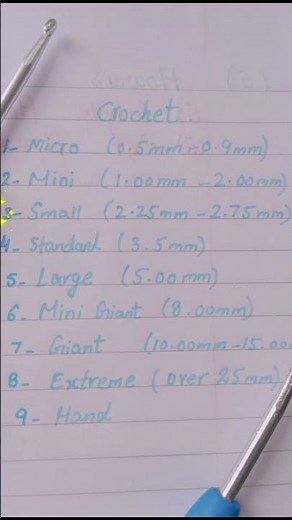 Crochet
1- Micro (0.5mm-0.9mm)
2- Mini (1.00mm -2.00mm)
3- Small (2.25mm -2.75mm)
4- Standard (3.5mm)
5- Large (5.00mm)
6- Mini Giant (8.00mm)
7- Giant (10.00mm-15.00
8- Extreme (over 25mm)
9- Hand